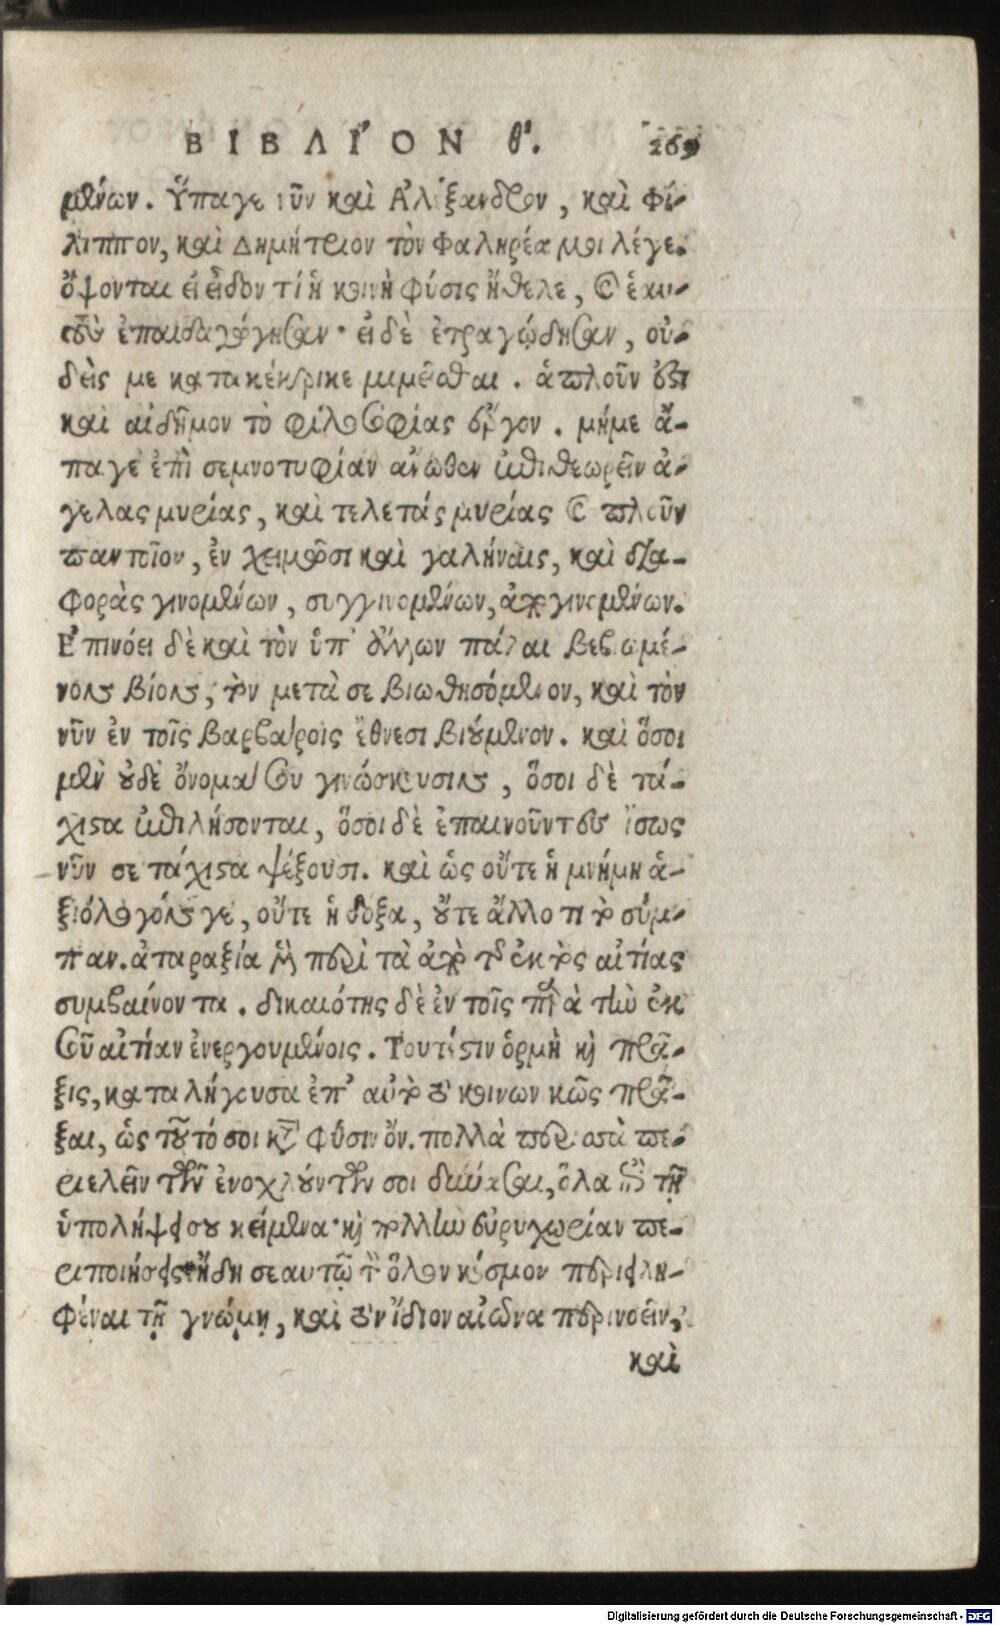 ΒΙΒΛΙ´ΟΝ θ'. 269
μένων. Ὕπαγε νῦν καὶ Ἀλέξανδρον, καὶ Φί-
λιππον, καὶ Δημήτριον τὸν Φαληρέα μοι λέγε.
ὄψονται εἰ εἶδον τί ἡ κοινὴ φύσις ἤθελε, καὶ ἑαυ-
τοὺς ἐπαιδαγώγησαν· εἰ δὲ ἐτραγῴδησαν, οὐ-
δεὶς με κατακέκρικε μιμεῖσθαι. ἁπλοῦν ἐστι
καὶ αἰδῆμον τὸ φιλοσοφίας ἔργον. μήμε ἄ-
παγε ἐπὶ σεμνοτυφίαν ἄνωθεν ἐπιθεωρεῖν ἀ-
γελας μυρίας, καὶ τελετάς μυρίας καὶ πλοῦν
παντοῖον, ἐν χειμῶσι καὶ γαλήναις, καὶ δια-
φορὰς γινομένων, συγγινομένων, ἀπογινομένων.
Ἐπινόει δὲ καὶ τὸν ὑπ' ἄλλων πάλαι βεβιωμέ-
νον βίον, τὸν μετὰ σε βιωθησόμενον, καὶ τὸν
νῦν ἐν τοῖς βαρβάροις ἔθνεσι βιούμενον. καὶ ὅσοι
μὲν οὐδὲ ὄνομά σου γινώσκουσιν, ὅσοι δὲ τά-
χιστα ἐπιλήσονται, ὅσοι δὲ ἐπαινοῦντες ἴσως
νῦν σε τάχιστα ψέξουσι. καὶ ὡς οὔτε ἡ μνήμη ἀ-
ξιόλογόν γε, οὔτε ἡ δόξα, οὔτε ἄλλο τι τὸ σύμ-
παν. ἀταραξία μὲν περὶ τὰ ἀπὸ τῆς ἐκτὸς αἰτίας
συμβαίνοντα. δικαιότης δὲ ἐν τοῖς παρὰ τὴν ἐκ
σοῦ αἰτίαν ἐνεργουμένοις. Τουτέστιν ὁρμὴ καὶ πρᾶ-
ξις, καταλήγουσα ἐπ' αὐτὸ τὸ κοινωνικῶς πρᾶ-
ξαι, ὡς τοῦτό σοι κατὰ φύσιν ὄν. πολλὰ περισσὰ πε-
ριελεῖν τῶν ἐνοχλούντων σοι δύνασαι, ὅλα ἐπὶ τῇ
ὑπολήψει σου κείμενα· καὶ πολλὴν εὐρυχωρίαν πε-
ριποιήσεις ἤδη σεαυτῷ τὸ ὅλον κόσμον περιειλη-
φέναι τῇ γνώμῃ, καὶ τὸν ἴδιον αἰῶνα περινοεῖν,
καὶ
Digitalisierung gefördert durch die Deutsche Forschungsgemeinschaft - DFG